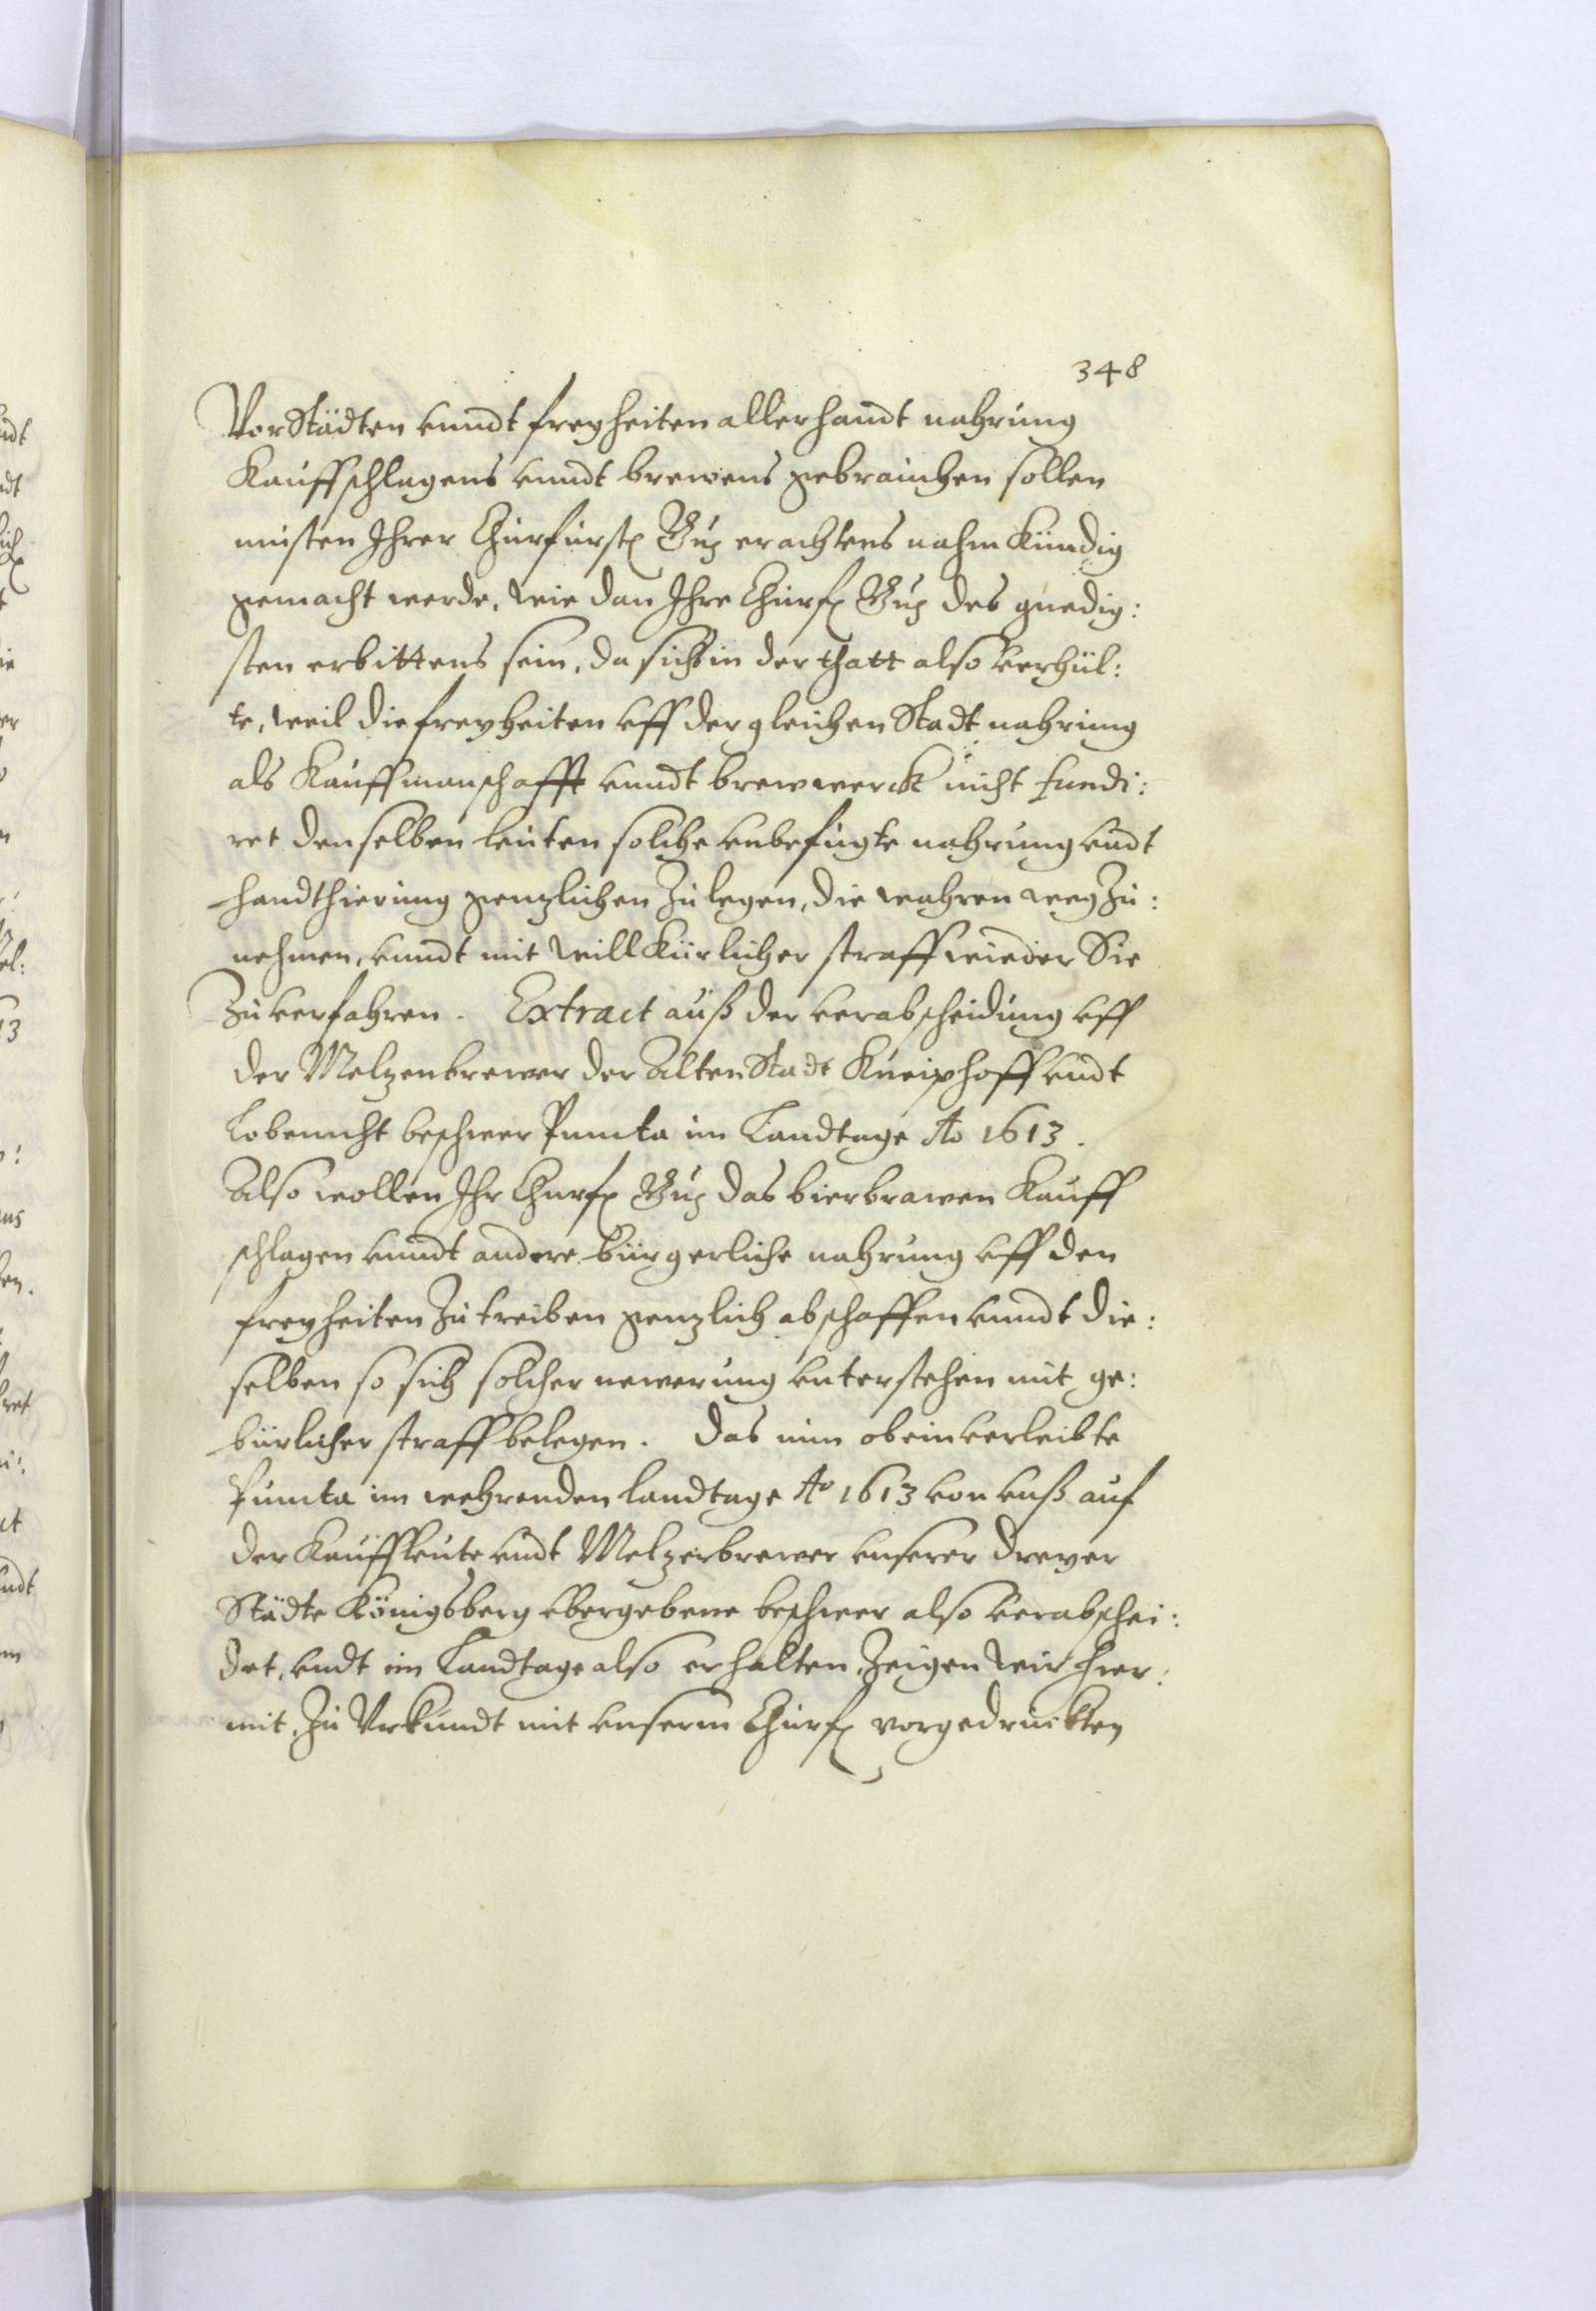 348
VorStädten vnndt freyheiten allerhandt nahrung
Kauffschlagens vnndt brewens gebrauchen sollen
müsten Ihrer Churfürstl Gnd erachtens nahmkundig
gemacht werde, wie dan Ihre Churfl Gnd des gnedig:
sten erbittens sein, da sichs in der thatt also verhül:
te, weil die freyheiten vff dergleichen Stadt nahrung
als Kauffmanschafft vnndt brewwerck nicht fundi:
ret denselben leuten solche vnbefugte nahrung vndt
handthierung genzlichen Zulegen, die wahren weg Zu:
nehmen, vnndt mit willkürlicher straff wieder Sie
Zu verfahren. Extract auß der verabscheidung vff
der Melzenbrewer der Alten Stadt Kneiphoff vndt
Lobenicht beschwer Puncta im Landtage Ao 1613.
Also wollen Ihr Churfl Gnd das bierbrawen Kauff
schlagen vnndt andere bürgerliche nahrung vff den
freyheiten Zutreiben genzlich abschaffen vnndt die:
selben so sich solcher newerung vnterstehen mit ge:
bürlicher straff belegen. Das nun obeinverleibte
Puncta im wehrenden landtage Ao 1613 von vnß auf
der Kauffleute vndt Melzerbrewer vnserer dreyer
Städte Königsberg vbergebene beschwer also verabschei:
det, vndt im Landtage also erhalten, Zeigen wir hier:
mit, Zu Vrkundt mit vnserm Churfl vorgedruckten